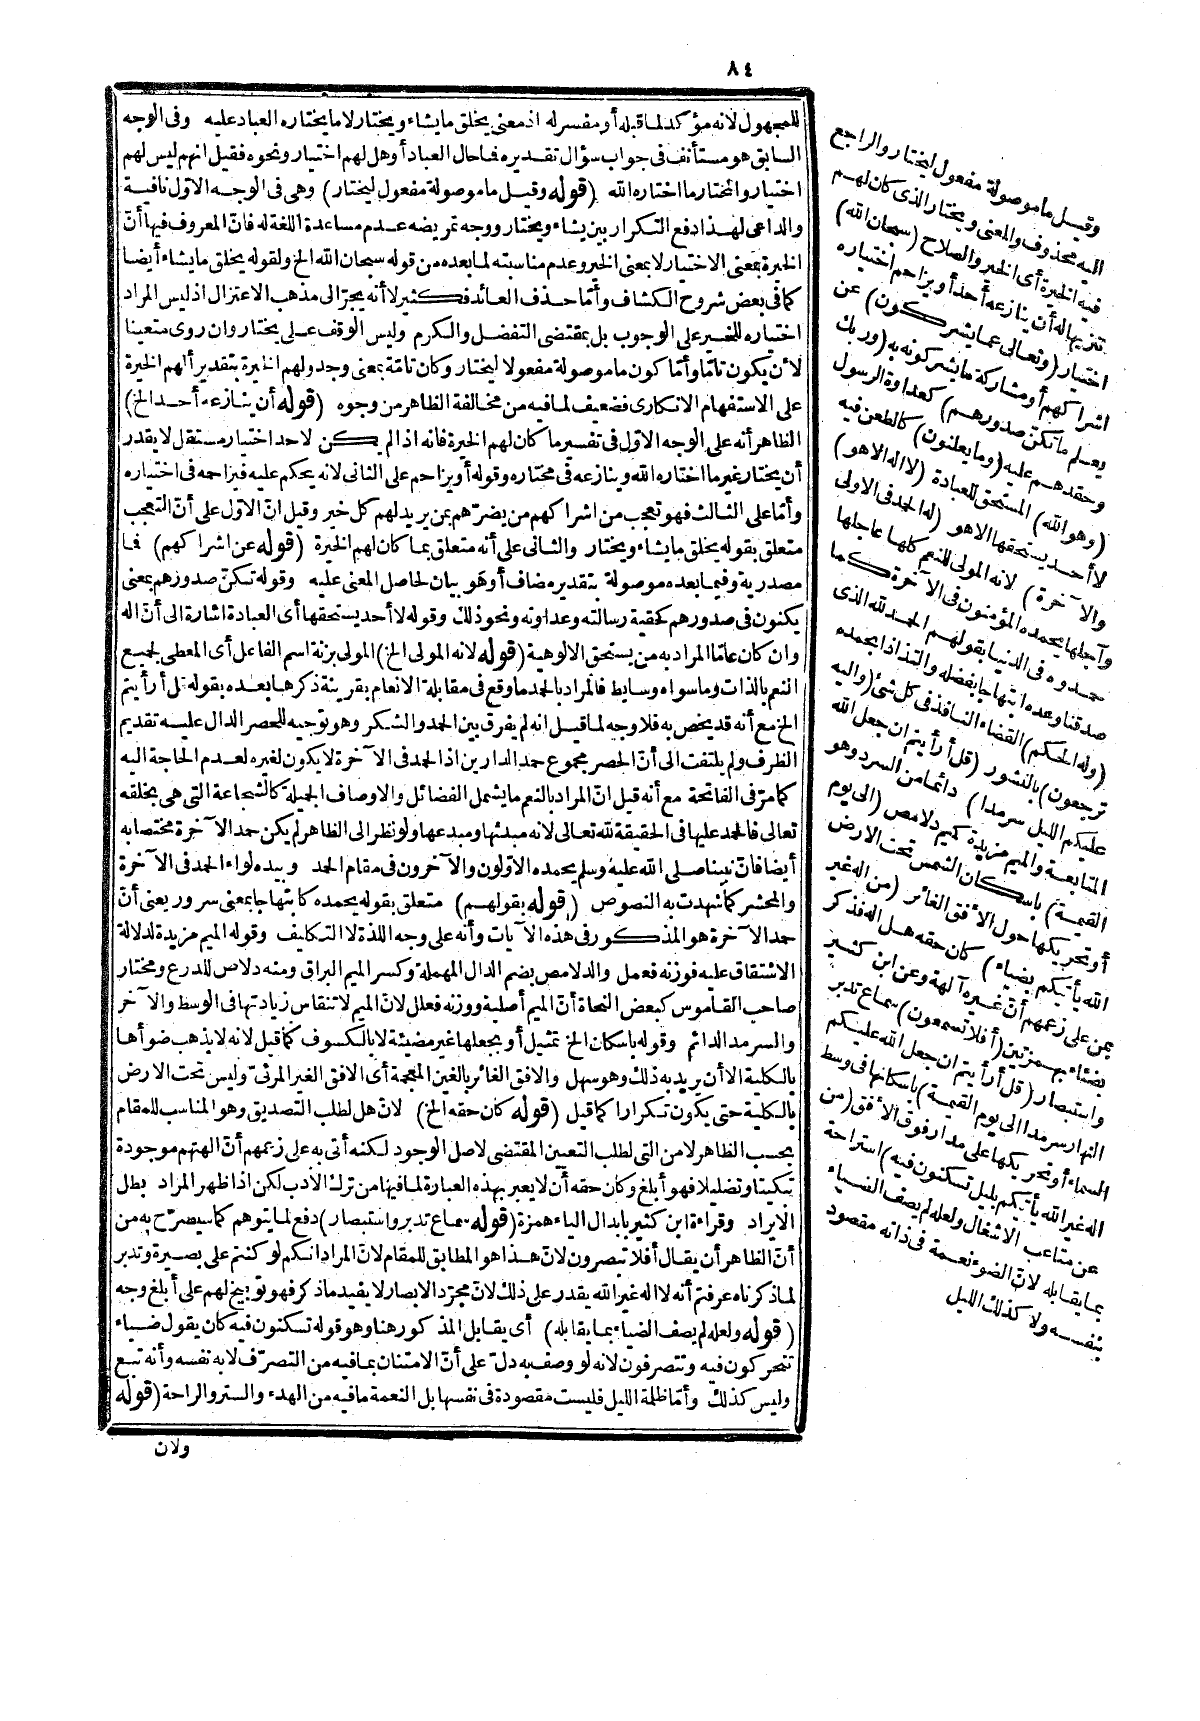 ٨٤
للمجهول لانه مؤكد لما قبله أو مفسر له اذ معنى يخلق ما يشاء ويختار لا ما يختاره العباد عليه وفى الوجه
السابق هو مستأنف فى جواب سؤال تقديره فما حال العباد أو هل لهم اختيار ونحوه فقيل انهم ليس لهم
اختيار وانما المختار ما اختاره الله (قوله وقيل ما موصولة مفعول ليختار) وهى فى الوجه الاوّل نافية
والداعى لهذا دفع التكرار بين يشاء ويختار ووجه تمريضه عدم مساعدة اللغة له فانّ المعروف فيها أنّ
الخيرة بمعنى الاختيار لا بمعنى الخير وعدم مناسبته لما بعده من قوله سبحان الله الخ ولقوله يخلق ما يشاء أيضا
كما فى بعض شروح الكشاف وأمّا حذف العائد فكثير لا أنه يجرّ الى مذهب الاعتزال اذ ليس المراد
اختياره للخير على الوجوب بل بمقتضى التفضل والكرم وليس الوقف على يختار وان روى متعينا
لأن يكون تامّا وأمّا كون ما موصولة مفعولا ليختار وكان تامّة بمعنى وجد ولهم الخيرة بتقدير ألهم الخيرة
على الاستفهام الانكارى فضعيف لما فيه من مخالفة الظاهر من وجوه (قوله أن ينازعه أحد الخ)
الظاهر أنه على الوجه الاوّل فى تفسير ما كان لهم الخيرة فانه اذا لم يكن لاحد اختيار مستقل لا يقدر
أن يختار غير ما اختاره الله وينازعه فى مختاره وقوله أو يزاحم على الثانى لانه يحكم عليه فيزاحمه فى اختياره
وأمّا على الثالث فهو تعجب من اشراكهم من يضرّهم بمن يريد لهم كل خير وقيل انّ الاوّل على أنّ التعجب
متعلق بقوله يخلق ما يشاء ويختار والثانى على أنه متعلق بما كان لهم الخيرة (قوله عن اشراكهم) فما
مصدرية وفيما بعده موصولة بتقدير مضاف أو هو بيان لحاصل المعنى عليه وقوله تكنّ صدورهم بمعنى
يكنون فى صدورهم كحقية رسالته وعداوته ونحو ذلك وقوله لا أحد يستحقها أى العبادة اشارة الى أنّ اله
وان كان عامّا المراد به من يستحق الالوهية (قوله لانه المولى الخ) المولى بزنة اسم الفاعل أى المعطى لجميع
النعم بالذات وما سواه وسايط فالمراد بالحمد ما وقع فى مقابلة الانعام بقرينة ذكرها بعده بقوله قل أرأيتم
الخ مع أنه قد يخص به فلا وجه لما قيل انه لم يفرق بين الحمد والشكر وهو توجيه للحصر الدال عليه تقديم
الظرف ولم يلتفت الى أنّ الحصر بمجموع حمد الدارين اذ الحمد فى الآخرة لا يكون لغيره لعدم الحاجة اليه
كما مرّ فى الفاتحة مع أنه قيل انّ المراد بالنعم ما يشمل الفضائل والاوصاف الجميلة كالشجاعة التى هى بخلقه
تعالى فالحمد عليها فى الحقيقة لله تعالى لانه مبدئها ومبدعها ولو نظر الى الظاهر لم يكن حمد الآخرة مختصا به
أيضا فانّ نبينا صلى الله عليه وسلم يحمده الاوّلون والآخرون فى مقام الحمد وبيده لواء الحمد فى الآخرة
والمحشر كما شهدت به النصوص (قوله بقولهم) متعلق بقوله يحمده كابتهاجا بمعنى سرور يعنى أنّ
حمد الآخرة هو المذكور فى هذه الآيات وأنه على وجه اللذة لا التكليف وقوله الميم مزيدة لدلالة
الاشتقاق عليه فوزنه فعمل والدلامص بضم الدال المهملة وكسر الميم البراق ومنه دلاص للدرع ومختار
صاحب القاموس كبعض النحاة أنّ الميم أصلية ووزنه فعلل لانّ الميم لا تنقاس زيادتها فى الوسط والآخر
والسرمد الدائم وقوله باسكان الخ تمثيل أو بجعلها غير مضيئة لا بالكسوف كما قيل لانه لا يذهب ضوأها
بالكلية الا أن يريد به ذلك وهو سهل والافق الغائر بالغين المعجمة أى الافق الغير المرئىّ وليس تحت الارض
بالكلية حتى يكون تكرارا كما قيل (قوله كان حقه الخ) لانّ هل لطلب التصديق وهو المناسب للمقام
بحسب الظاهر لا من التى لطلب التعيين المقتضى لاصل الوجود لكنه أتى به على زعمهم أنّ الهتهم موجودة
تبكيتا وتضليلا فهو أبلغ وكان حقه أن لا يعبر بهذه العبارة لما فيها من ترك الادب لكن اذا ظهر المراد بطل
الايراد وقراءة ابن كثير بابدال الياء همزة (قوله سماع تدبر واستبصار) دفع لما يتوهم كما سيصرّح به من
أنّ الظاهر أن يقال أفلا تبصرون لانّ هذا هو المطابق للمقام لانّ المراد انكم لو كنتم على بصيرة وتدبر
لما ذكرناه عرفتم أنه لا اله غير الله يقدر على ذلك لانّ مجرّد الابصار لا يفيد ما ذكر فهو توبيخ لهم على أبلغ وجه
(قوله ولعله لم يصف الضياء بما يقابله) أى يقابل المذكور هنا وهو قوله تسكنون فيه كان يقول ضياء
تتحركون فيه وتتصرفون لانه لو وصف به دلّ على أنّ الامتنان بما فيه من التصرّف لا به نفسه وأنه تبع
وليس كذلك وأمّا ظلمة الليل فليست مقصودة فى نفسها بل النعمة ما فيه من الهدء والستر والراحة (قوله
ولان
وقيل ما موصولة مفعول ليختار والراجع
اليه محذوف والمعنى ويختار الذى كان لهم
فيه الخيرة أى الخير والصلاح (سبحان الله)
تنزيها له أن ينازعه أحد أو يزاحم اختياره
اختيار (وتعالى عما يشركون) عن
اشراكهم أو مشاركة ما يشركونه به (وربك
يعلم ما تكنّ صدورهم) كعداوة الرسول
وحقدهم عليه (وما يعلنون) كالطعن فيه
(وهو الله) المستحق للعبادة (لا اله الا هو)
لا أحد يستحقها الا هو (له الحمد فى الاولى
والآخرة) لانه المولى للنعم كلها عاجلها
وآجلها يحمده المؤمنون فى الآخرة كما
حمدوه فى الدنيا بقولهم الحمد لله الذى
صدقنا وعده ابتهاجا بفضله والتذاذا بحمده
(وله الحكم) القضاء النافذ فى كل شئ (واليه
ترجعون) بالنشور (قل أرأيتم ان جعل الله
عليكم الليل سرمدا) دائما من السرد وهو
المتابعة والميم مزيدة كميم دلامص (الى يوم
القيمة) باسكان الشمس تحت الارض
أو تحريكها حول الافق الغائر (من اله غير
الله يأتيكم بضياء) كان حقه هل اله فذكر
بمن على زعمهم أنّ غيره آلهة وعن ابن كثير
بضئاء بهمزتين (أفلا تسمعون) سماع تدبر
واستبصار (قل أرأيتم ان جعل الله عليكم
النهار سرمدا الى يوم القيمة) باسكانها فى وسط
السماء أو تحريكها على مدار فوق الافق (من
اله غير الله يأتيكم بليل تسكنون فيه) استراحة
عن متاعب الاشغال ولعله لم يصف الضياء
بما يقابله لانّ الضوء نعمة فى ذاته مقصود
بنفسه ولا كذلك الليل